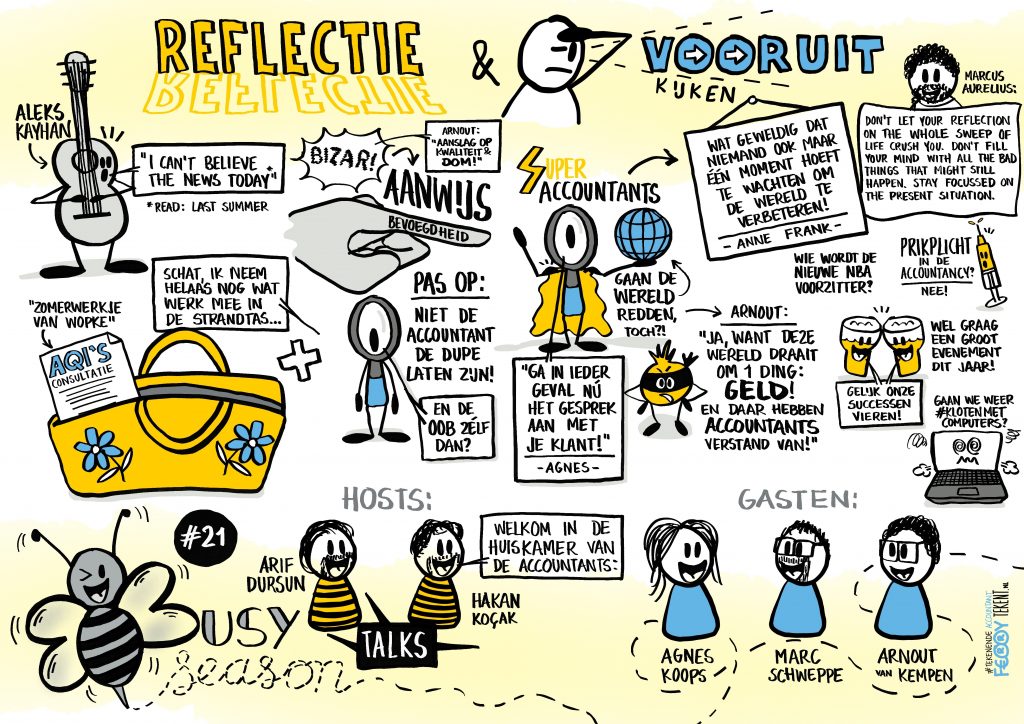 REFLECTIE
REFLECTIE
&
VOORUIT
KIJKEN
ALEKS
KAYHAN
"I CAN'T BELIEVE
THE NEWS TODAY"
*READ: LAST SUMMER
BIZAR!
ARNOUT:
"AANSLAG OP
KWALITEIT &
DOM!"
AANWIJS
BEVOEGDHEID
SUPER
ACCOUNTANTS
WAT GEWELDIG DAT
NIEMAND OOK MAAR
ÉÉN MOMENT HOEFT
TE WACHTEN OM
DE WERELD TE
VERBETEREN!
- ANNE FRANK -
MARCUS
AURELIUS:
DON'T LET YOUR REFLECTION
ON THE WHOLE SWEEP OF
LIFE CRUSH YOU. DON'T FILL
YOUR MIND WITH ALL THE BAD
THINGS THAT MIGHT STILL
HAPPEN. STAY FOCUSSED ON
THE PRESENT SITUATION.
SCHAT, IK NEEM
HELAAS NOG WAT
WERK MEE IN
DE STRANDTAS...
"ZOMERWERKJE
VAN WOPKE"
AQI'S
CONSULTATIE
PAS OP:
NIET DE
ACCOUNTANT
DE DUPE
LATEN ZIJN!
EN DE
OOB ZÉLF
DAN?
GAAN DE
WERELD
REDDEN,
TOCH?!
"GA IN IEDER
GEVAL NÚ
HET GESPREK
AAN MET
JE KLANT!"
- AGNES -
ARNOUT:
"JA, WANT DEZE
WERELD DRAAIT
OM 1 DING:
GELD!
EN DAAR HEBBEN
ACCOUNTANTS
VERSTAND VAN!"
WIE WORDT DE
NIEUWE NBA
VOORZITTER?
PRIKPLICHT
IN DE
ACCOUNTANCY?
NEE!
WEL GRAAG
EEN GROOT
EVENEMENT
DIT JAAR!
GELIJK ONZE
SUCCESSEN
VIEREN!
GAAN WE WEER
#KLOTENMET
COMPUTERS?
HOSTS:
GASTEN:
#21
BUSY
season
TALKS
ARIF
DURSUN
HAKAN
KOÇAK
WELKOM IN DE
HUISKAMER VAN
DE ACCOUNTANTS:
AGNES
KOOPS
MARC
SCHWEPPE
ARNOUT
VAN KEMPEN
#TEKENENDE ACCOUNTANT
FERRY TEKENT.NL